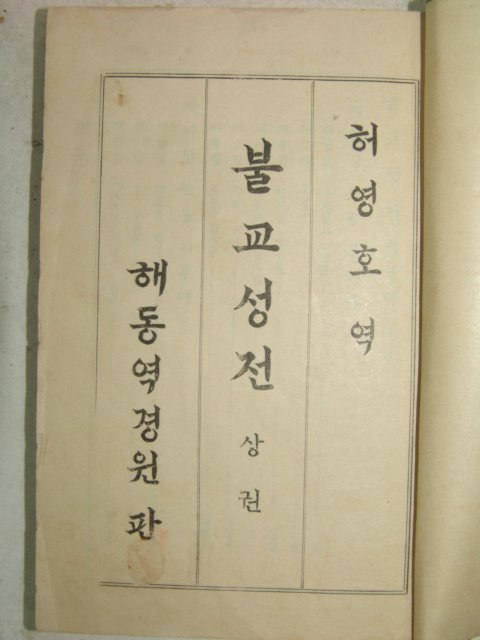 허영호 역
불교성전 상권
해동역경원 판